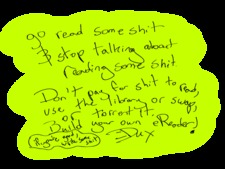 go read some shit
& stop talking about
reading some shit.
Don't pay for shit to read,
use the library or swap,
or torrent it.
Build your own eReader!
-Dux